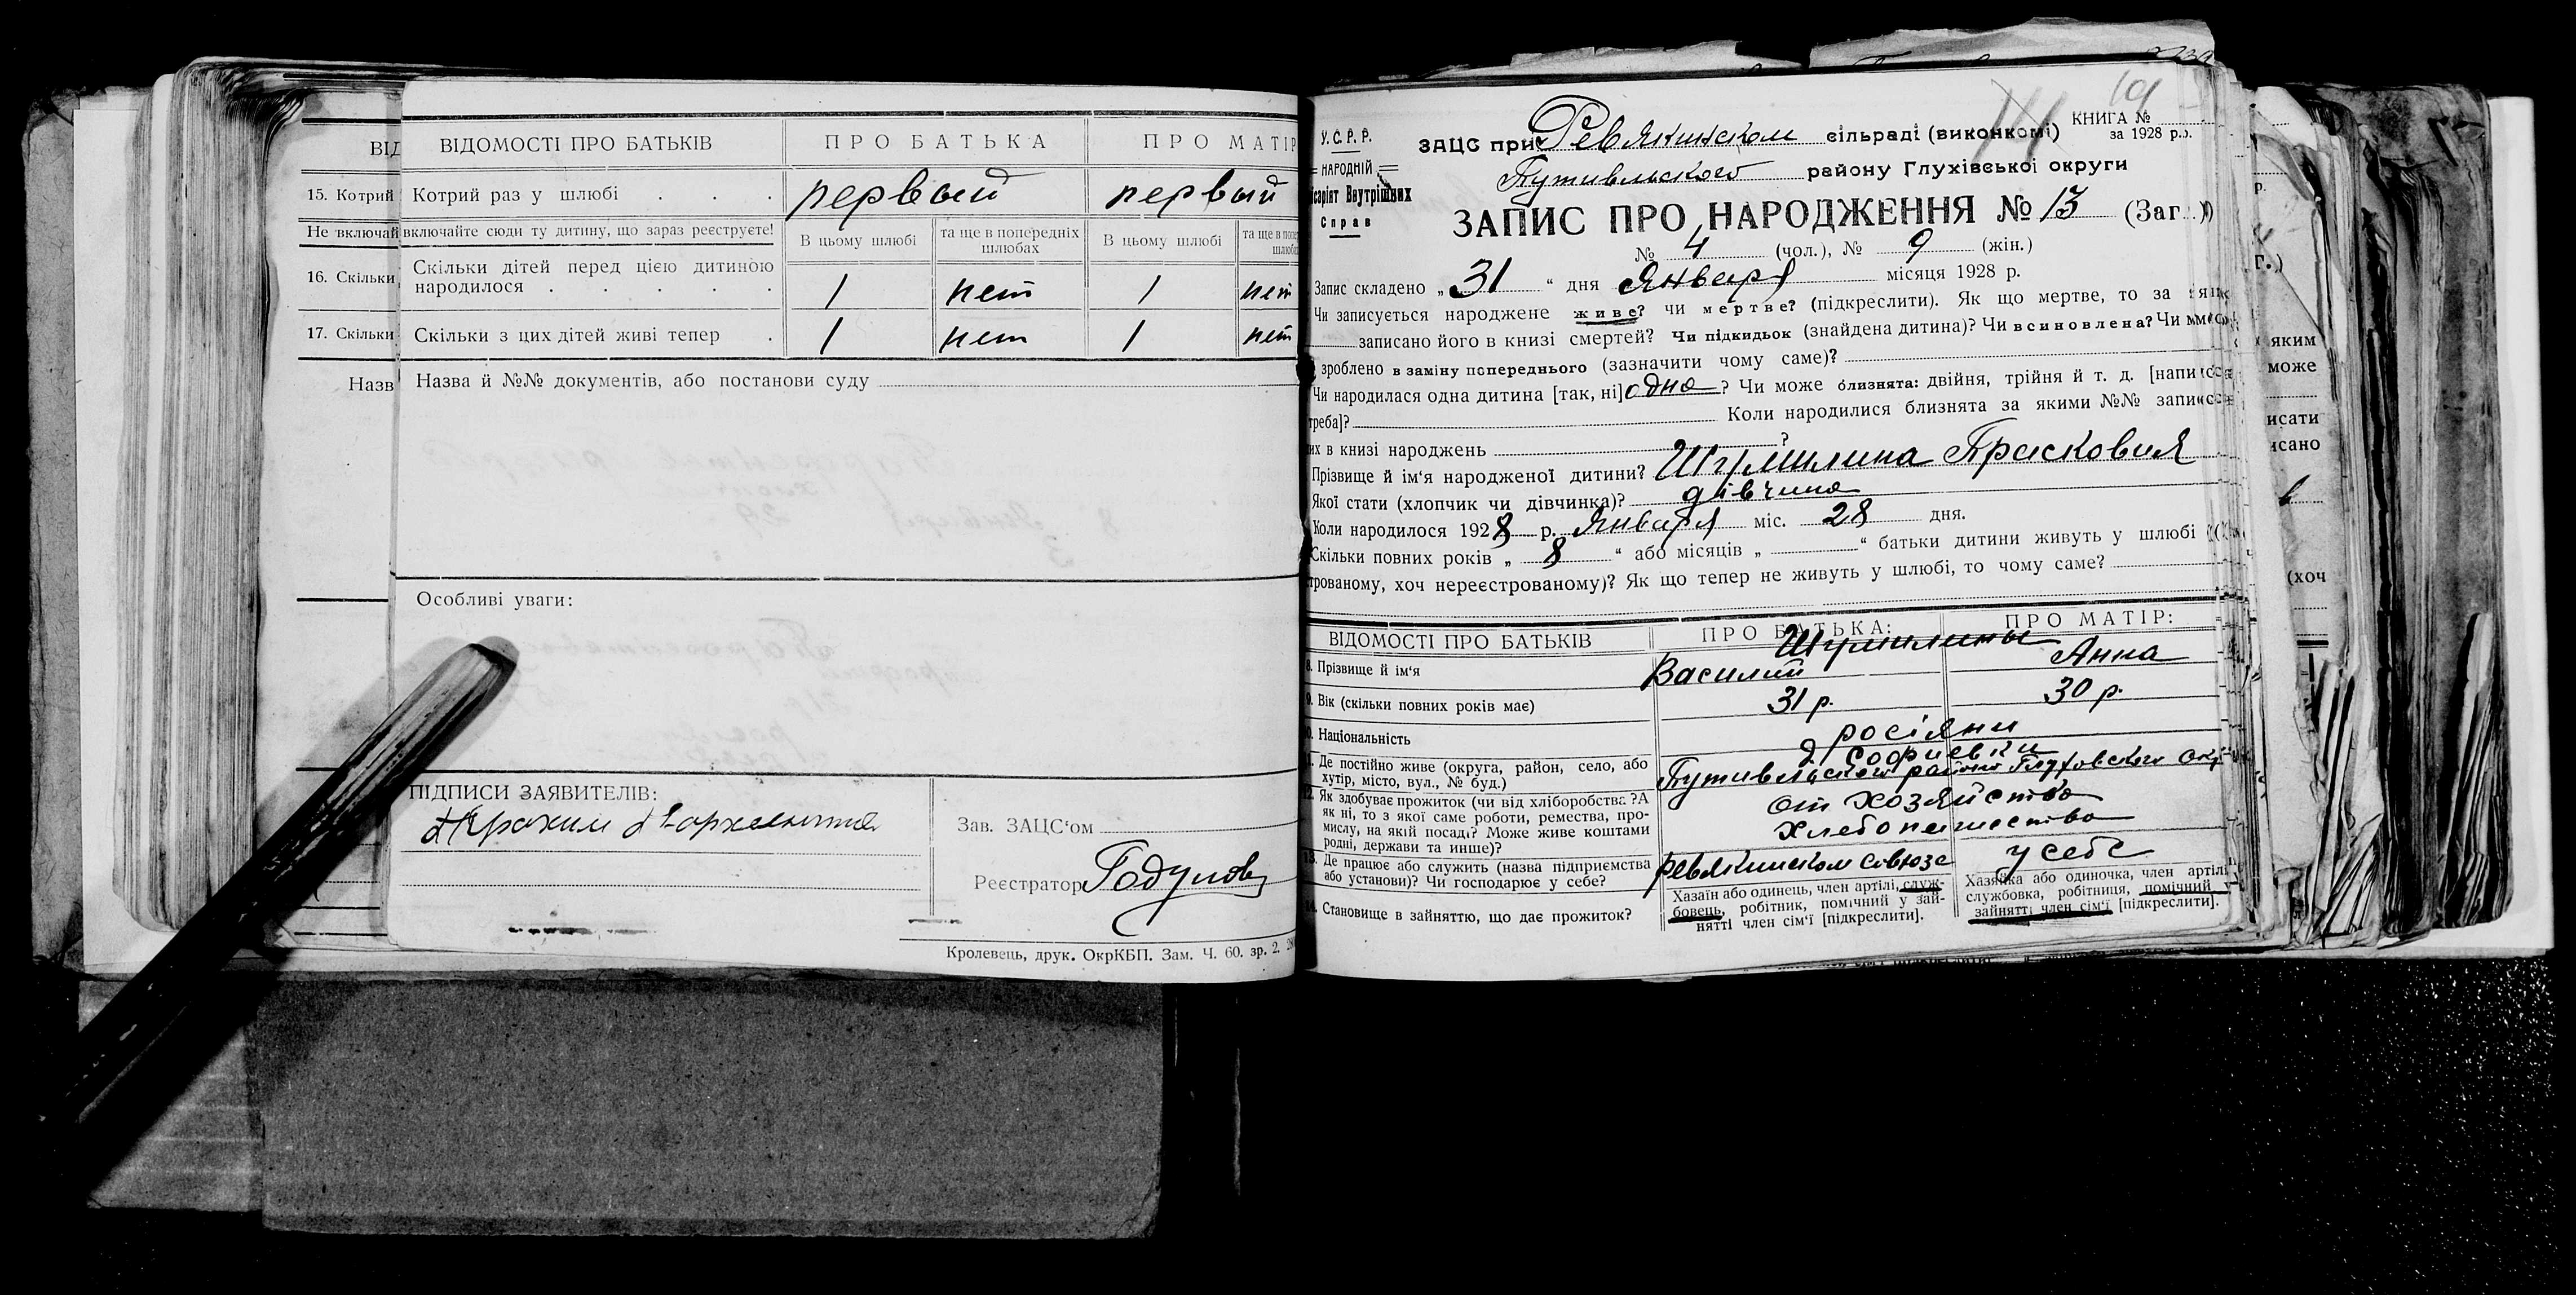 ВІДОМОСТІ ПРО БАТЬКІВ
ПРО БАТЬКА
ПРО МАТІР
15. Котрий
Котрий раз у шлюбі . . .
первый
первый
Не включай
включайте сюди ту дитину, що зараз реєструєте!
В цьому шлюбі
та ще в попередніх шлюбах
В цьому шлюбі
16. Скільки
Скільки дітей перед цією дитиною
народилося . . . . .
1
нет
1
нет
17. Скільки
Скільки з цих дітей живі тепер .
1
нет
1
нет
Назв
Назва й №№ документів, або постанови суду
Особливі уваги:
ПІДПИСИ ЗАЯВИТЕЛІВ:
Зав. ЗАЦС'ом
Реєстратор Годунов
Кролевець, друк. ОкрКБП. Зам. Ч. 60. зр. 2.
У.С.Р.Р.
НАРОДНІЙ
Внутрішних
Справ
19
КНИГА №
за 1928 р.
ЗАЦС при Ревякинском сільраді (виконкомі)
Путивльского району Глухівської округи
ЗАПИС ПРО НАРОДЖЕННЯ № 13 (Заг.)
№ 4 (чол.), № 9 (жін.)
Запис складено „ 31 “ дня Января місяця 1928 р.
Чи записується народжене живе? чи мертве? (підкреслити). Як що мертве, то за
записано його в книзі смертей? Чи підкидьок (знайдена дитина)? Чи всиновлена? Чи
зроблено в заміну попереднього (зазначити чому саме)?
Чи народилася одна дитина [так, ні] одна ? Чи може близнята: двійня, трійня й т. д.
треба]? Коли народилися близнята за якими №№
их в книзі народжень ?
Прізвище й ім'я народженої дитини? Шумилина Прасковия
Якої стати (хлопчик чи дівчинка)? дівчина
Коли народилося 1928 р. Января міс. 28 дня.
Скільки повних років „ 8 “ або місяців „ “ батьки дитини живуть у шлюбі
трованому, хоч нереєстрованому)? Як що тепер не живуть у шлюбі, то чому саме?
ВІДОМОСТІ ПРО БАТЬКІВ
ПРО БАТЬКА:
ПРО МАТІР:
Шумилины
8. Прізвище й ім'я
Василий
Анна
9. Вік (скільки повних років має)
31 р.
30 р.
Національність
росіяни
Де постійно живе (округа, район, село, або
хутір, місто, вул., № буд.)
д Софиевки
Путивльского района Глуховского окр
Як здобуває прожиток (чи від хліборобства? А
як ні, то з якої саме роботи, ремества, про-
мислу, на якій посаді? Може живе коштами
родні, держави та инше)?
от хозяйства
хлебопашества
13. Де працює або служить (назва підприємства
або установи)? Чи господарює у себе?
ревякинском союзе
у себе
Становище в зайняттю, що дає прожиток?
Хазаїн або одинець, член артілі, служ-
бовець, робітник, помічний у зай-
нятті член сім'ї [підкреслити].
Хазяйка або одиночка, член артілі
службовка, робітниця, помічний у
зайнятті член сім'ї [підкреслити].
яким
може
исати
исано
(хоч